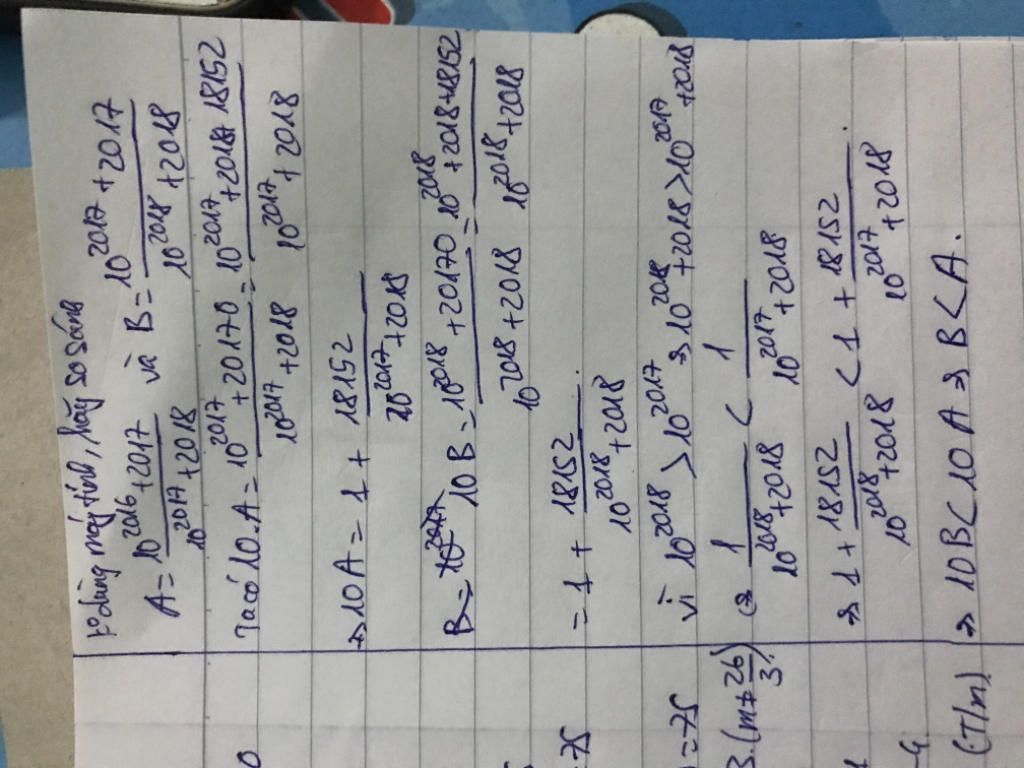 dùng máy tính, hãy so sánh
A = \frac{10^{2016} + 2017}{10^{2017} + 2018} và B = \frac{10^{2017} + 2017}{10^{2018} + 2018}
Ta có 10.A = \frac{10^{2017} + 20170}{10^{2017} + 2018} = \frac{10^{2017} + 2018 + 18152}{10^{2017} + 2018}
=> 10A = 1 + \frac{18152}{10^{2017} + 2018}
10B = \frac{10^{2018} + 20170}{10^{2018} + 2018} = \frac{10^{2018} + 2018 + 18152}{10^{2018} + 2018}
= 1 + \frac{18152}{10^{2018} + 2018}.
vì 10^{2018} > 10^{2017} => 10^{2018} + 2018 > 10^{2017} + 2018
<=> \frac{1}{10^{2018} + 2018} < \frac{1}{10^{2017} + 2018}
=> 1 + \frac{18152}{10^{2018} + 2018} < 1 + \frac{18152}{10^{2017} + 2018}.
=> 10B < 10A => B < A.
0
= 75
= 75
3. (m \neq \frac{26}{3})
-4.
(T/m)